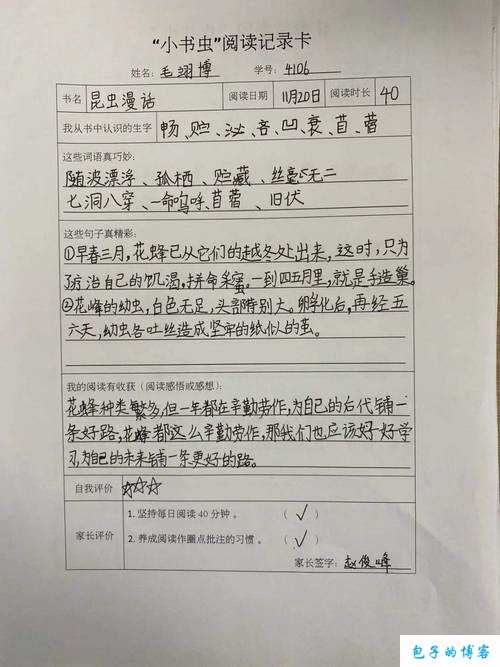 “小书虫”阅读记录卡
姓名：毛翊博 学号：4106
书名 昆虫漫话 阅读日期 11月20日 阅读时长 40
我从书中认识的生字 畅、贮、泌、吝、凹、衰、苜、蓿
这些词语真巧妙：
随波漂浮、孤栖、贮藏、丝毫无二
七洞八穿、一命呜呼、苜蓿、旧伏
这些句子真精彩：
①早春三月，花蜂已从它们的越冬处出来，这时，只为
了疗治自己的饥渴，拼命采蜜。一到四五月里，就是手造巢。
②花峰的幼虫，白色无足，头部特别大。孵化后，再经五
六天，幼虫各吐丝造成坚牢的纸似的茧。
我的阅读有收获（阅读感悟或感想）：
花蜂种类繁多，但一年都在辛勤劳作，为自己的后代铺一
条好路，花蜂都这么辛勤劳作，那我们也应该好好学
习，为自己的未来铺一条更好的路。
自我评价 ☆☆☆
家长评价
1. 坚持每日阅读 40 分钟。 （ √ ）
2. 养成阅读作圈点批注的习惯。 （ √ ）
家长签字：赵俊峰
包子的博客